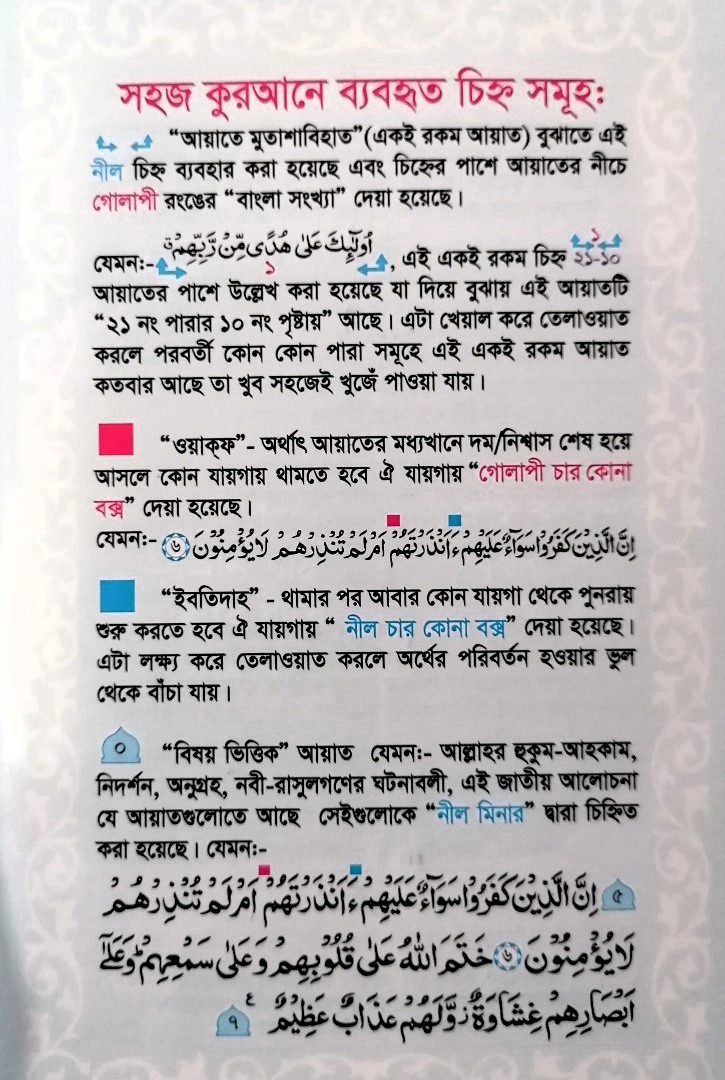 সহজ কুরআনে ব্যবহৃত চিহ্ন সমূহ:
“আয়াতে মুতাশাবিহাত”(একই রকম আয়াত) বুঝাতে এই
নীল চিহ্ন ব্যবহার করা হয়েছে এবং চিহ্নের পাশে আয়াতের নীচে
গোলাপী রংঙের “বাংলা সংখ্যা” দেয়া হয়েছে।
যেমন:- اُولٰٓئِكَ عَلٰى هُدًى مِّنْ رَّبِّهِمْ ۫ ১ , এই একই রকম চিহ্ন ১ ২১-১০
আয়াতের পাশে উল্লেখ করা হয়েছে যা দিয়ে বুঝায় এই আয়াতটি
“২১ নং পারার ১০ নং পৃষ্টায়” আছে। এটা খেয়াল করে তেলাওয়াত
করলে পরবর্তী কোন কোন পারা সমূহে এই একই রকম আয়াত
কতবার আছে তা খুব সহজেই খুজেঁ পাওয়া যায়।
“ওয়াক্ফ”- অর্থাৎ আয়াতের মধ্যখানে দম/নিশ্বাস শেষ হয়ে
আসলে কোন যায়গায় থামতে হবে ঐ যায়গায় “গোলাপী চার কোনা
বক্স” দেয়া হয়েছে।
যেমন:- اِنَّ الَّذِيْنَ كَفَرُوْا سَوَآءٌ عَلَيْهِمْ ءَاَنْذَرْتَهُمْ اَمْ لَمْ تُنْذِرْهُمْ لَا يُؤْمِنُوْنَ ৬
“ইবতিদাহ” - থামার পর আবার কোন যায়গা থেকে পুনরায়
শুরু করতে হবে ঐ যায়গায় “ নীল চার কোনা বক্স” দেয়া হয়েছে।
এটা লক্ষ্য করে তেলাওয়াত করলে অর্থের পরিবর্তন হওয়ার ভুল
থেকে বাঁচা যায়।
০ “বিষয় ভিত্তিক” আয়াত যেমন:- আল্লাহর হুকুম-আহকাম,
নিদর্শন, অনুগ্রহ, নবী-রাসুলগণের ঘটনাবলী, এই জাতীয় আলোচনা
যে আয়াতগুলোতে আছে সেইগুলোকে “নীল মিনার” দ্বারা চিহ্নিত
করা হয়েছে। যেমন:-
৫ اِنَّ الَّذِيْنَ كَفَرُوْا سَوَآءٌ عَلَيْهِمْ ءَاَنْذَرْتَهُمْ اَمْ لَمْ تُنْذِرْهُمْ
لَا يُؤْمِنُوْنَ ৬ خَتَمَ اللّٰهُ عَلٰى قُلُوْبِهِمْ وَعَلٰى سَمْعِهِمْ ؕ وَعَلٰٓى
اَبْصَارِهِمْ غِشَاوَةٌ ز وَّلَهُمْ عَذَابٌ عَظِيْمٌ ع ৭